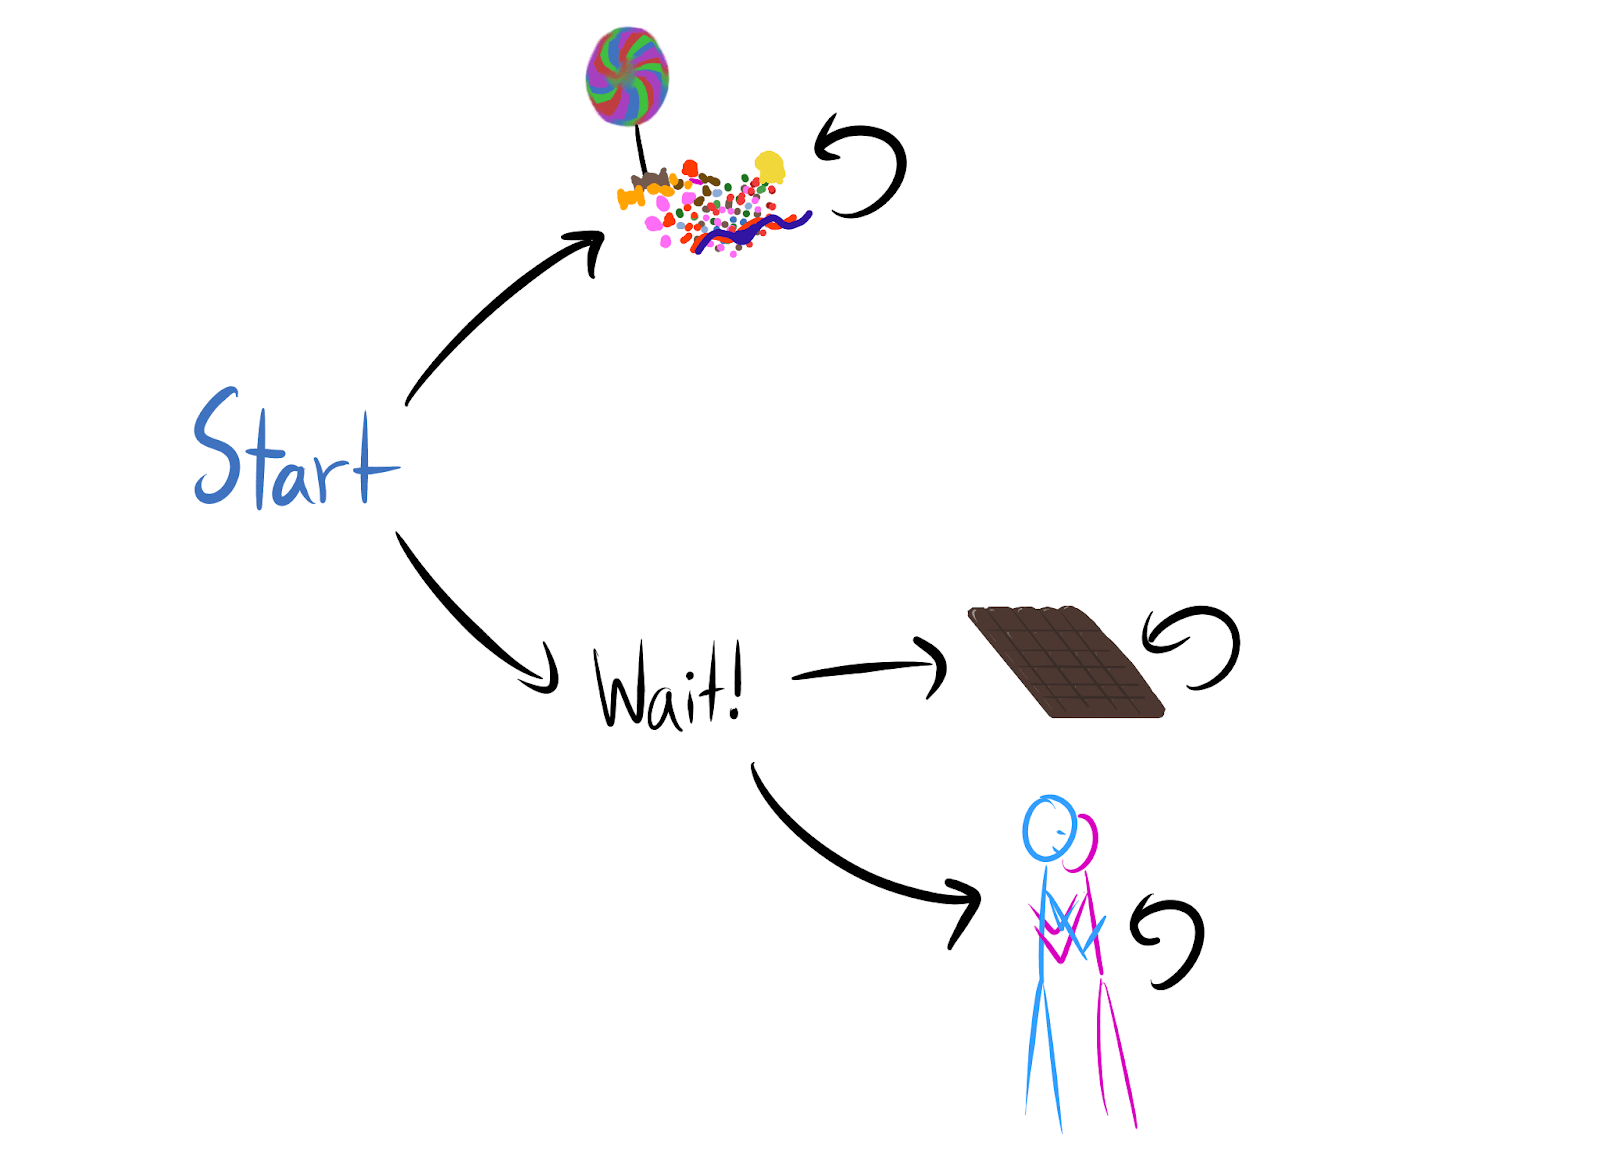 Start
Wait!